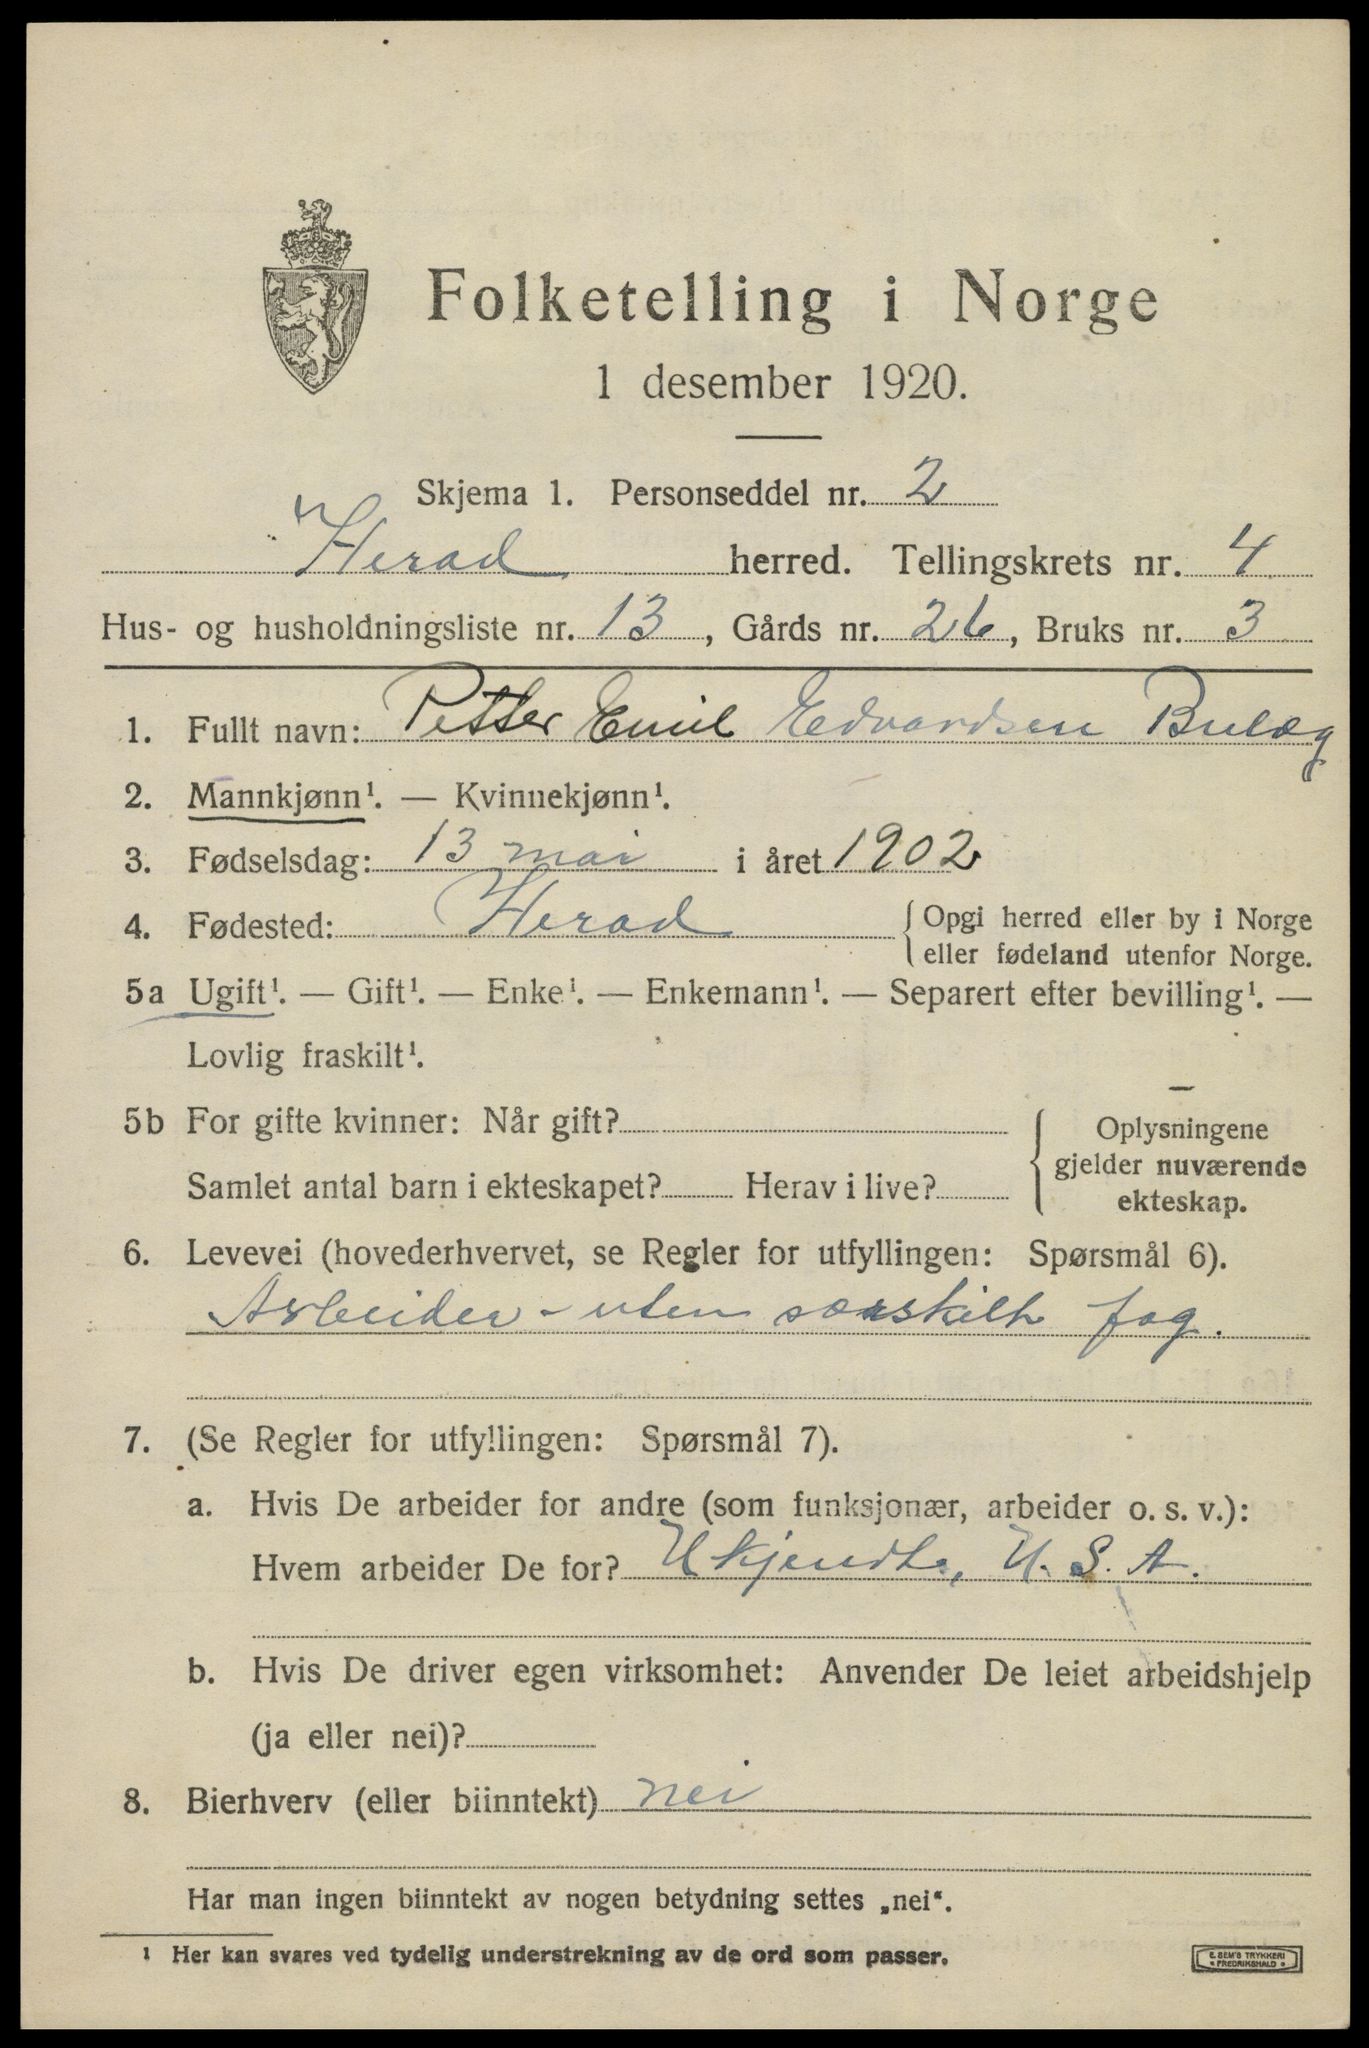 Folketelling i Norge
1 desember 1920.
Skjema 1. Personseddel nr. 2
Herad herred. Tellingskrets nr. 4
Hus- og husholdningsliste nr. 13, Gårds nr. 26, Bruks nr. 3
1. Fullt navn: Petter Emil Edvardsen Bulæg
2. Mannkjønn¹. — Kvinnekjønn¹.
3. Fødselsdag: 13 mai i året 1902
4. Fødested: Herad { Opgi herred eller by i Norge
eller fødeland utenfor Norge.
5a Ugift¹. — Gift¹. — Enke¹. — Enkemann¹. — Separert efter bevilling¹. —
Lovlig fraskilt¹.
5b For gifte kvinner: Når gift?
Samlet antal barn i ekteskapet? Herav i live?
Oplysningene
gjelder nuværende
ekteskap.
6. Levevei (hovederhvervet, se Regler for utfyllingen: Spørsmål 6).
Arbeider - uten særskilt fag.
7. (Se Regler for utfyllingen: Spørsmål 7).
a. Hvis De arbeider for andre (som funksjonær, arbeider o. s. v.):
Hvem arbeider De for? Ukjendte, U. S. A.
b. Hvis De driver egen virksomhet: Anvender De leiet arbeidshjelp
(ja eller nei)?
8. Bierhverv (eller biinntekt) nei
Har man ingen biinntekt av nogen betydning settes „nei“.
¹ Her kan svares ved tydelig understrekning av de ord som passer.
E. SEM'S TRYKKERI
FREDRIKSHALD